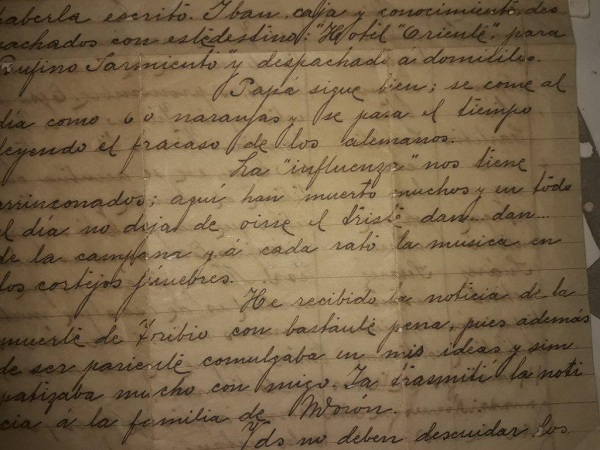 haberla escrito. Iban caja y conocimiento des
pachados con este destino: "Hotel "Oriente", para
"Rufino Sarmiento" y despachado á domicilio.
Papá sigue bien; se come al
día como 60 naranjas y se pasa el tiempo
leyendo el fracaso de los alemanos.
La "influenza" nos tiene
arrinconados; aquí han muerto muchos y en todo
el dia no deja de oirse el triste dan... dan...
de la campana y á cada rato la música en
los cortejos fúnebres.
He recibido la noticia de la
muerte de Toribio con bastante pena, pues además
de ser pariente comulgaba en mis ideas y sim
patizaba mucho con migo. Ya trasmití la noti
cia á la familia de Morón.
Yds no deben descuidar los